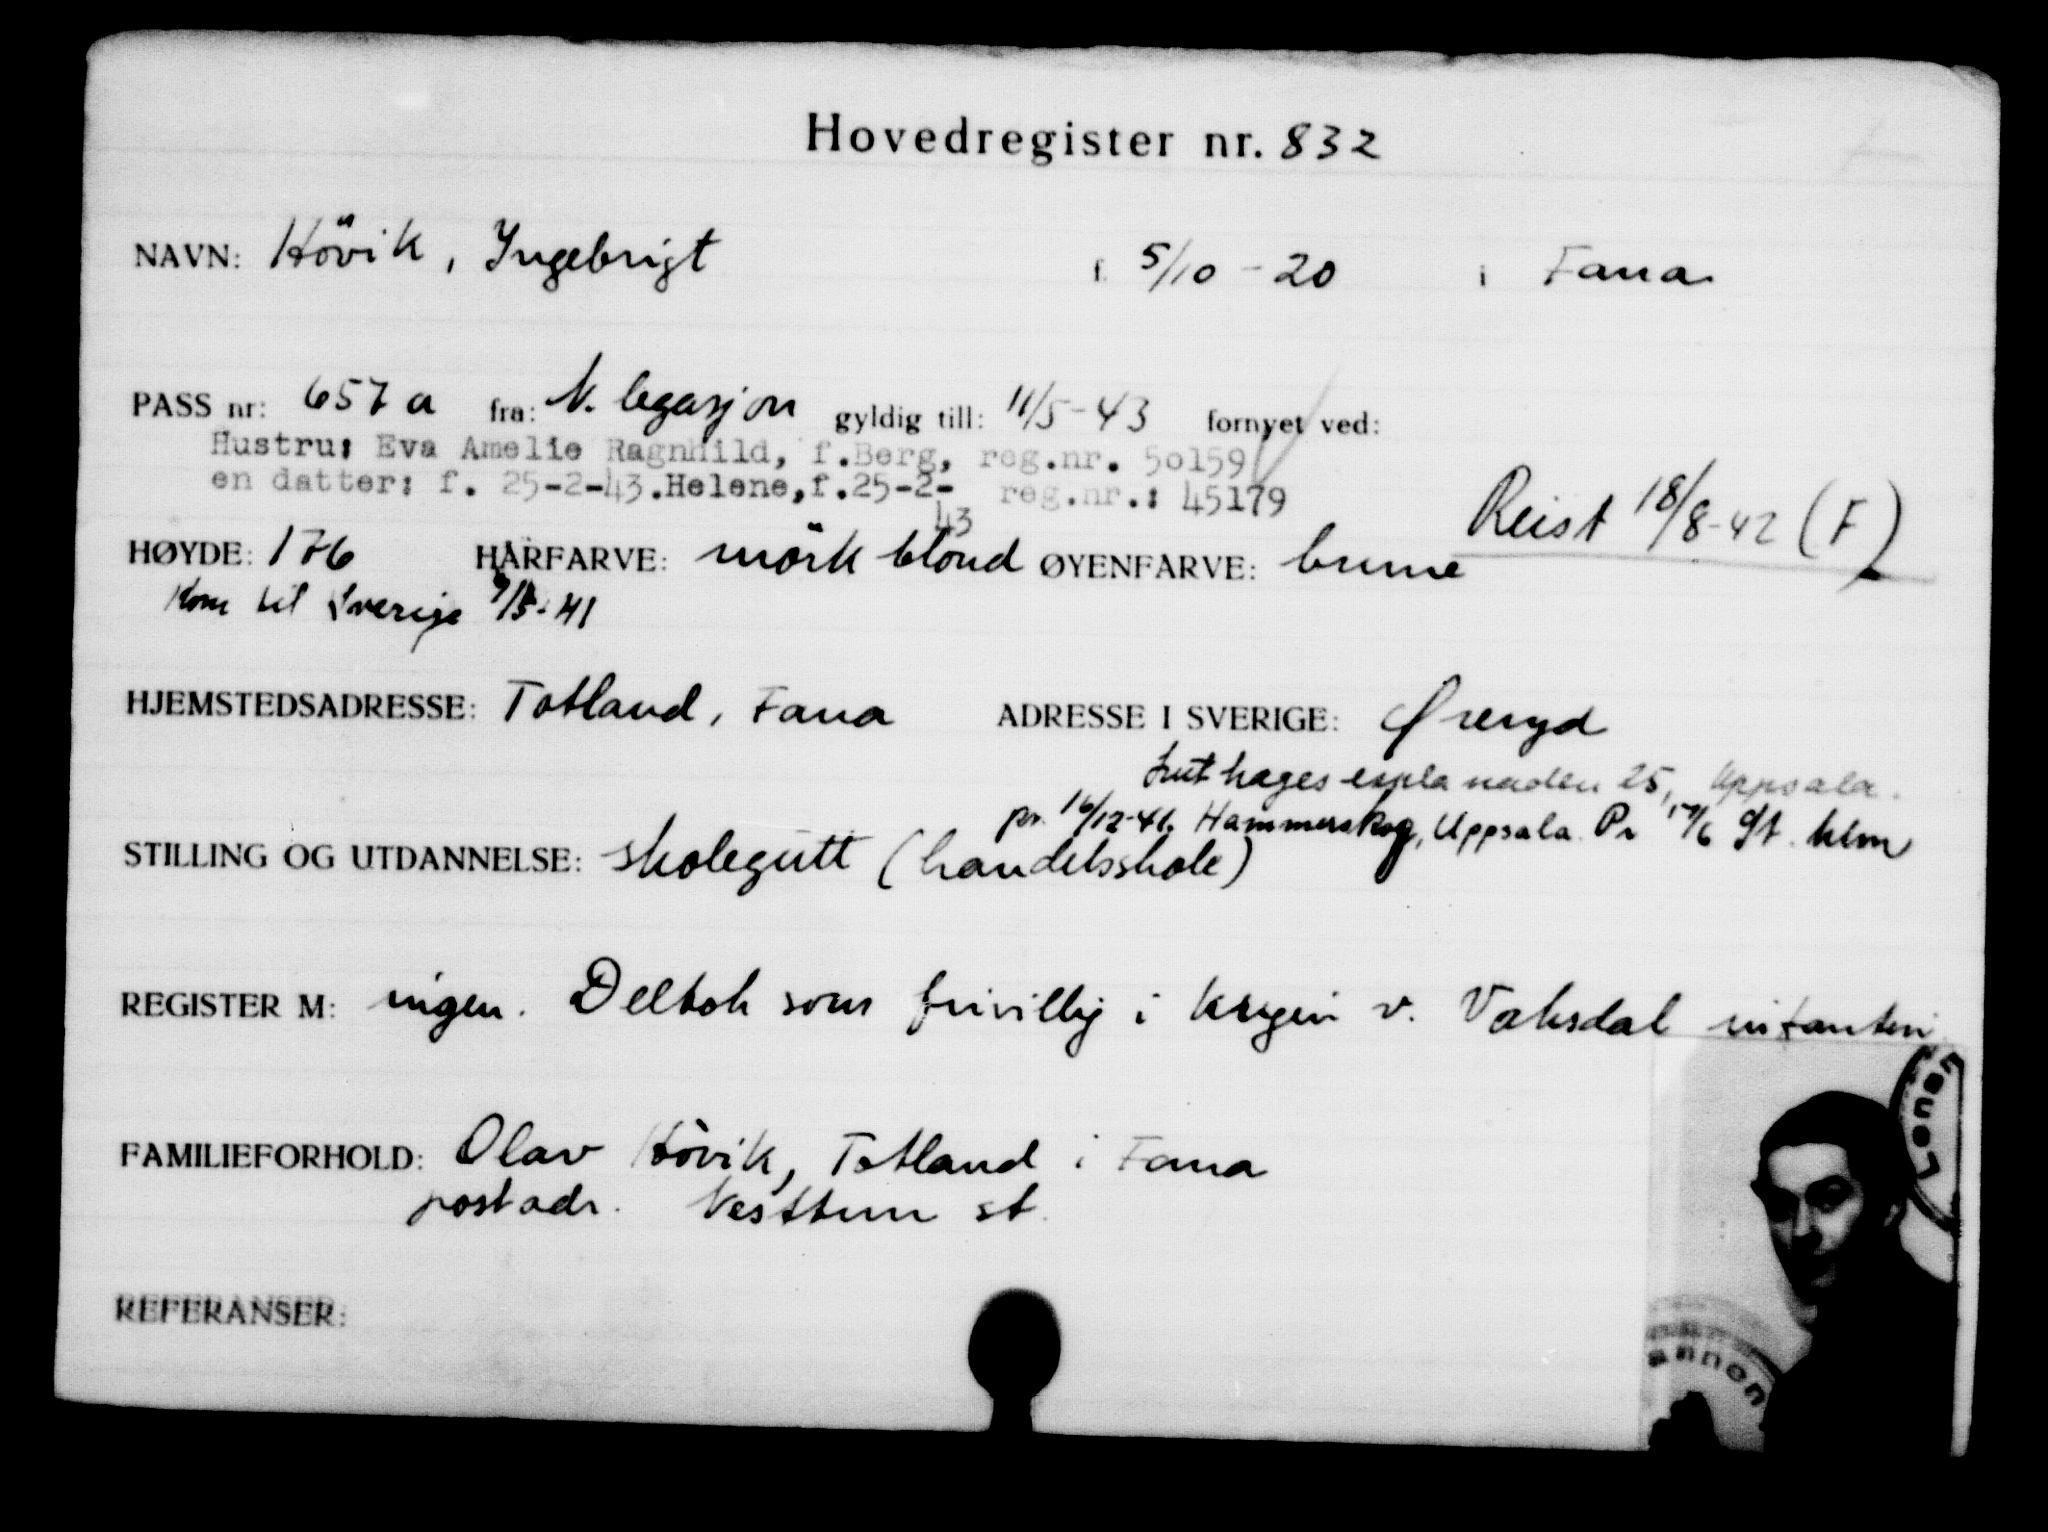 Hovedregister nr. 832
NAVN: Hövik, Ingebrigt f. 5/10 - 20 i Fana
PASS nr: 657 a fra: N. legasjon gyldig till: 11/5 - 43 fornyet ved:
Hustru: Eva Amelie Ragnhild, f.Berg, reg.nr. 50159
en datter: f. 25-2-43.Helene,f.25-2- reg.nr.: 45179
43
Reist 18/8-42 (F)
HØYDE: 176 HÅRFARVE: mörk blond ØYENFARVE: brune
Kom til Sverige 9/5-41
HJEMSTEDSADRESSE: Totland, Fana ADRESSE I SVERIGE: Øreryd
Luthagesesplanaden 25, Uppsala.
pr. 16/12-41. Hammerskog, Uppsala. Pr 17/6 St. hlm
STILLING OG UTDANNELSE: skolegutt (handelsskole)
REGISTER M: ingen. Deltok som frivillig i krigen v. Vaksdal infanteri
FAMILIEFORHOLD: Olav Hövik, Totland i Fana
postadr. Nesttun st.
REFERANSER: